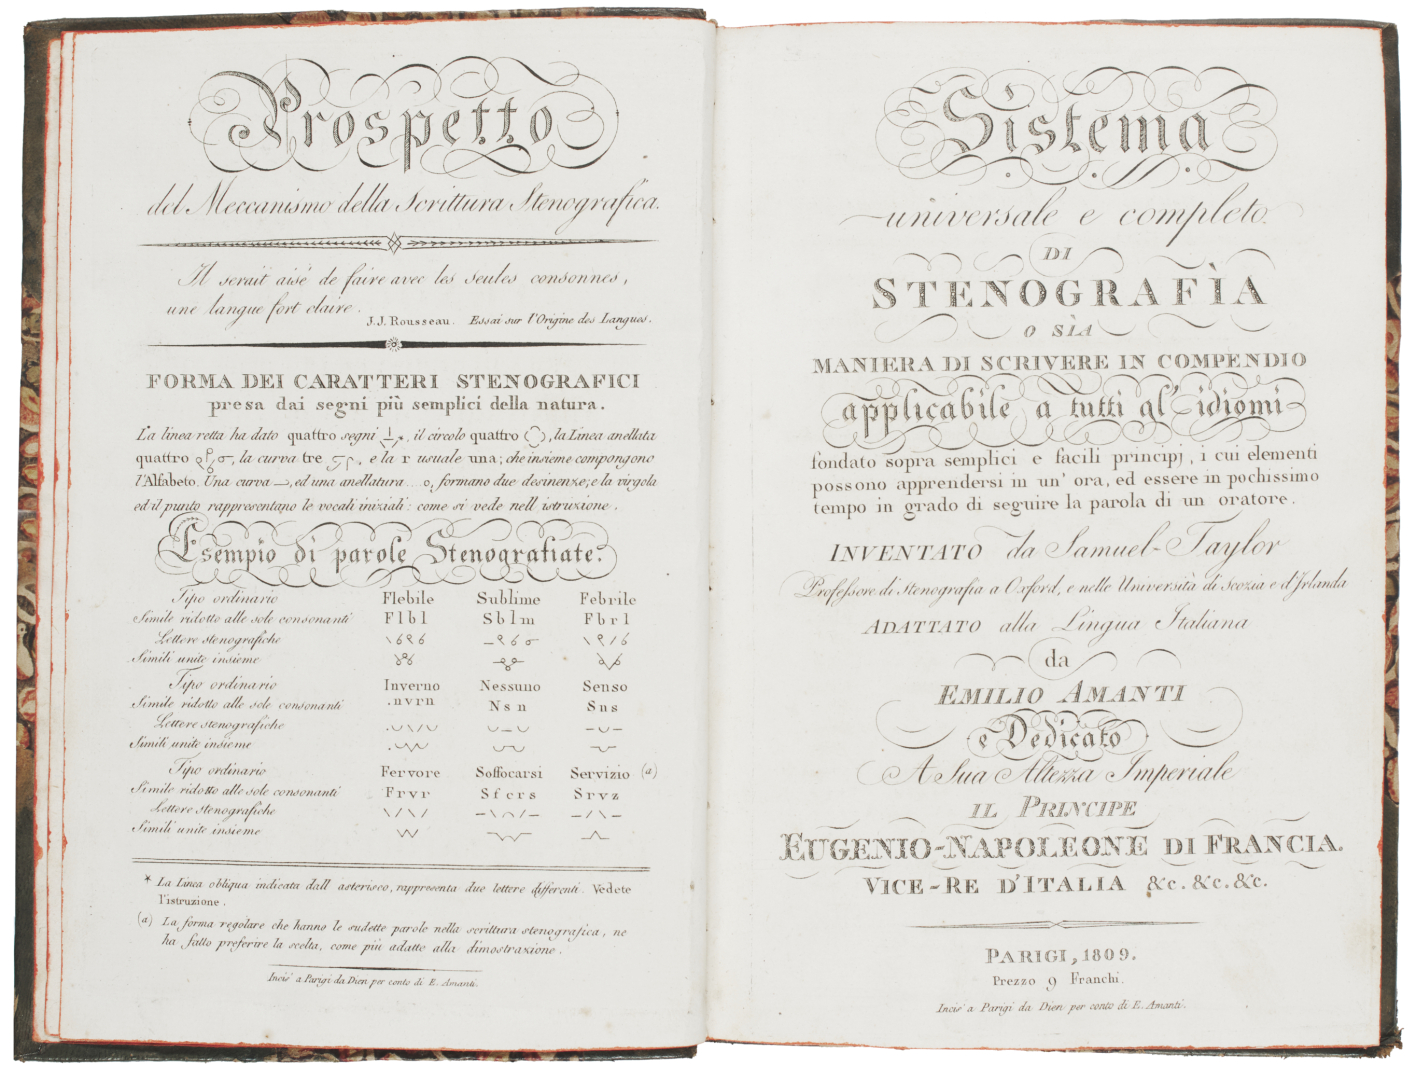 Prospetto
del Meccanismo della Scrittura Stenografica.
Il serait aisé de faire avec les seules consonnes,
une langue fort claire.
J.J. Rousseau. Essai sur l'Origine des Langues.
FORMA DEI CARATTERI STENOGRAFICI
presa dai segni più semplici della natura.
La linea retta ha dato quattro segni, il circolo quattro, la Linea anellata
quattro, la curva tre, e la r usuale una; che insieme compongono
l'Alfabeto. Una curva, ed una anellatura....o, formano due desinenze; e la virgola
ed il punto rappresentano le vocali iniziali: come si vede nell' istruzione.
Esempio di parole Stenografiate.
Tipo ordinario Flebile Sublime Febrile
Simile ridotto alle sole consonanti Flbl Sblm Fbrl
Lettere stenografiche
Simili unite insieme
Tipo ordinario Inverno Nessuno Senso
Simile ridotto alle sole consonanti .nvrn Nsn Sns
Lettere stenografiche
Simili unite insieme
Tipo ordinario Fervore Soffocarsi Servizio (a)
Simile ridotto alle sole consonanti Frvr Sfcrs Srvz
Lettere stenografiche
Simili unite insieme
* La Linea obliqua indicata dall asterisco, rappresenta due lettere differenti. Vedete
l'istruzione.
(a) La forma regolare che hanno le sudette parole nella scrittura stenografica, ne
ha fatto preferire la scelta, come più adatte alla dimostrazione.
Incis' a Parigi da Dien per conto di E. Amanti.
Sistema
universale e completo
DI
STENOGRAFÌA
O SÌA
MANIERA DI SCRIVERE IN COMPENDIO
applicabile a tutti gl' idiomi
fondato sopra semplici e facili principj, i cui elementi
possono apprendersi in un' ora, ed essere in pochissimo
tempo in grado di seguire la parola di un oratore.
INVENTATO da Samuel-Taylor
Professore di Stenografia a Oxford, e nelle Università di Scozia e d'Irlanda
ADATTATO alla Lingua Italiana
da
EMILIO AMANTI
e Dedicato
A Sua Altezza Imperiale
IL PRINCIPE
EUGENIO-NAPOLEONE DI FRANCIA.
VICE-RE D'ITALIA &c. &c. &c.
PARIGI, 1809.
Prezzo 9 Franchi.
Incis' a Parigi da Dien per conto di E. Amanti.